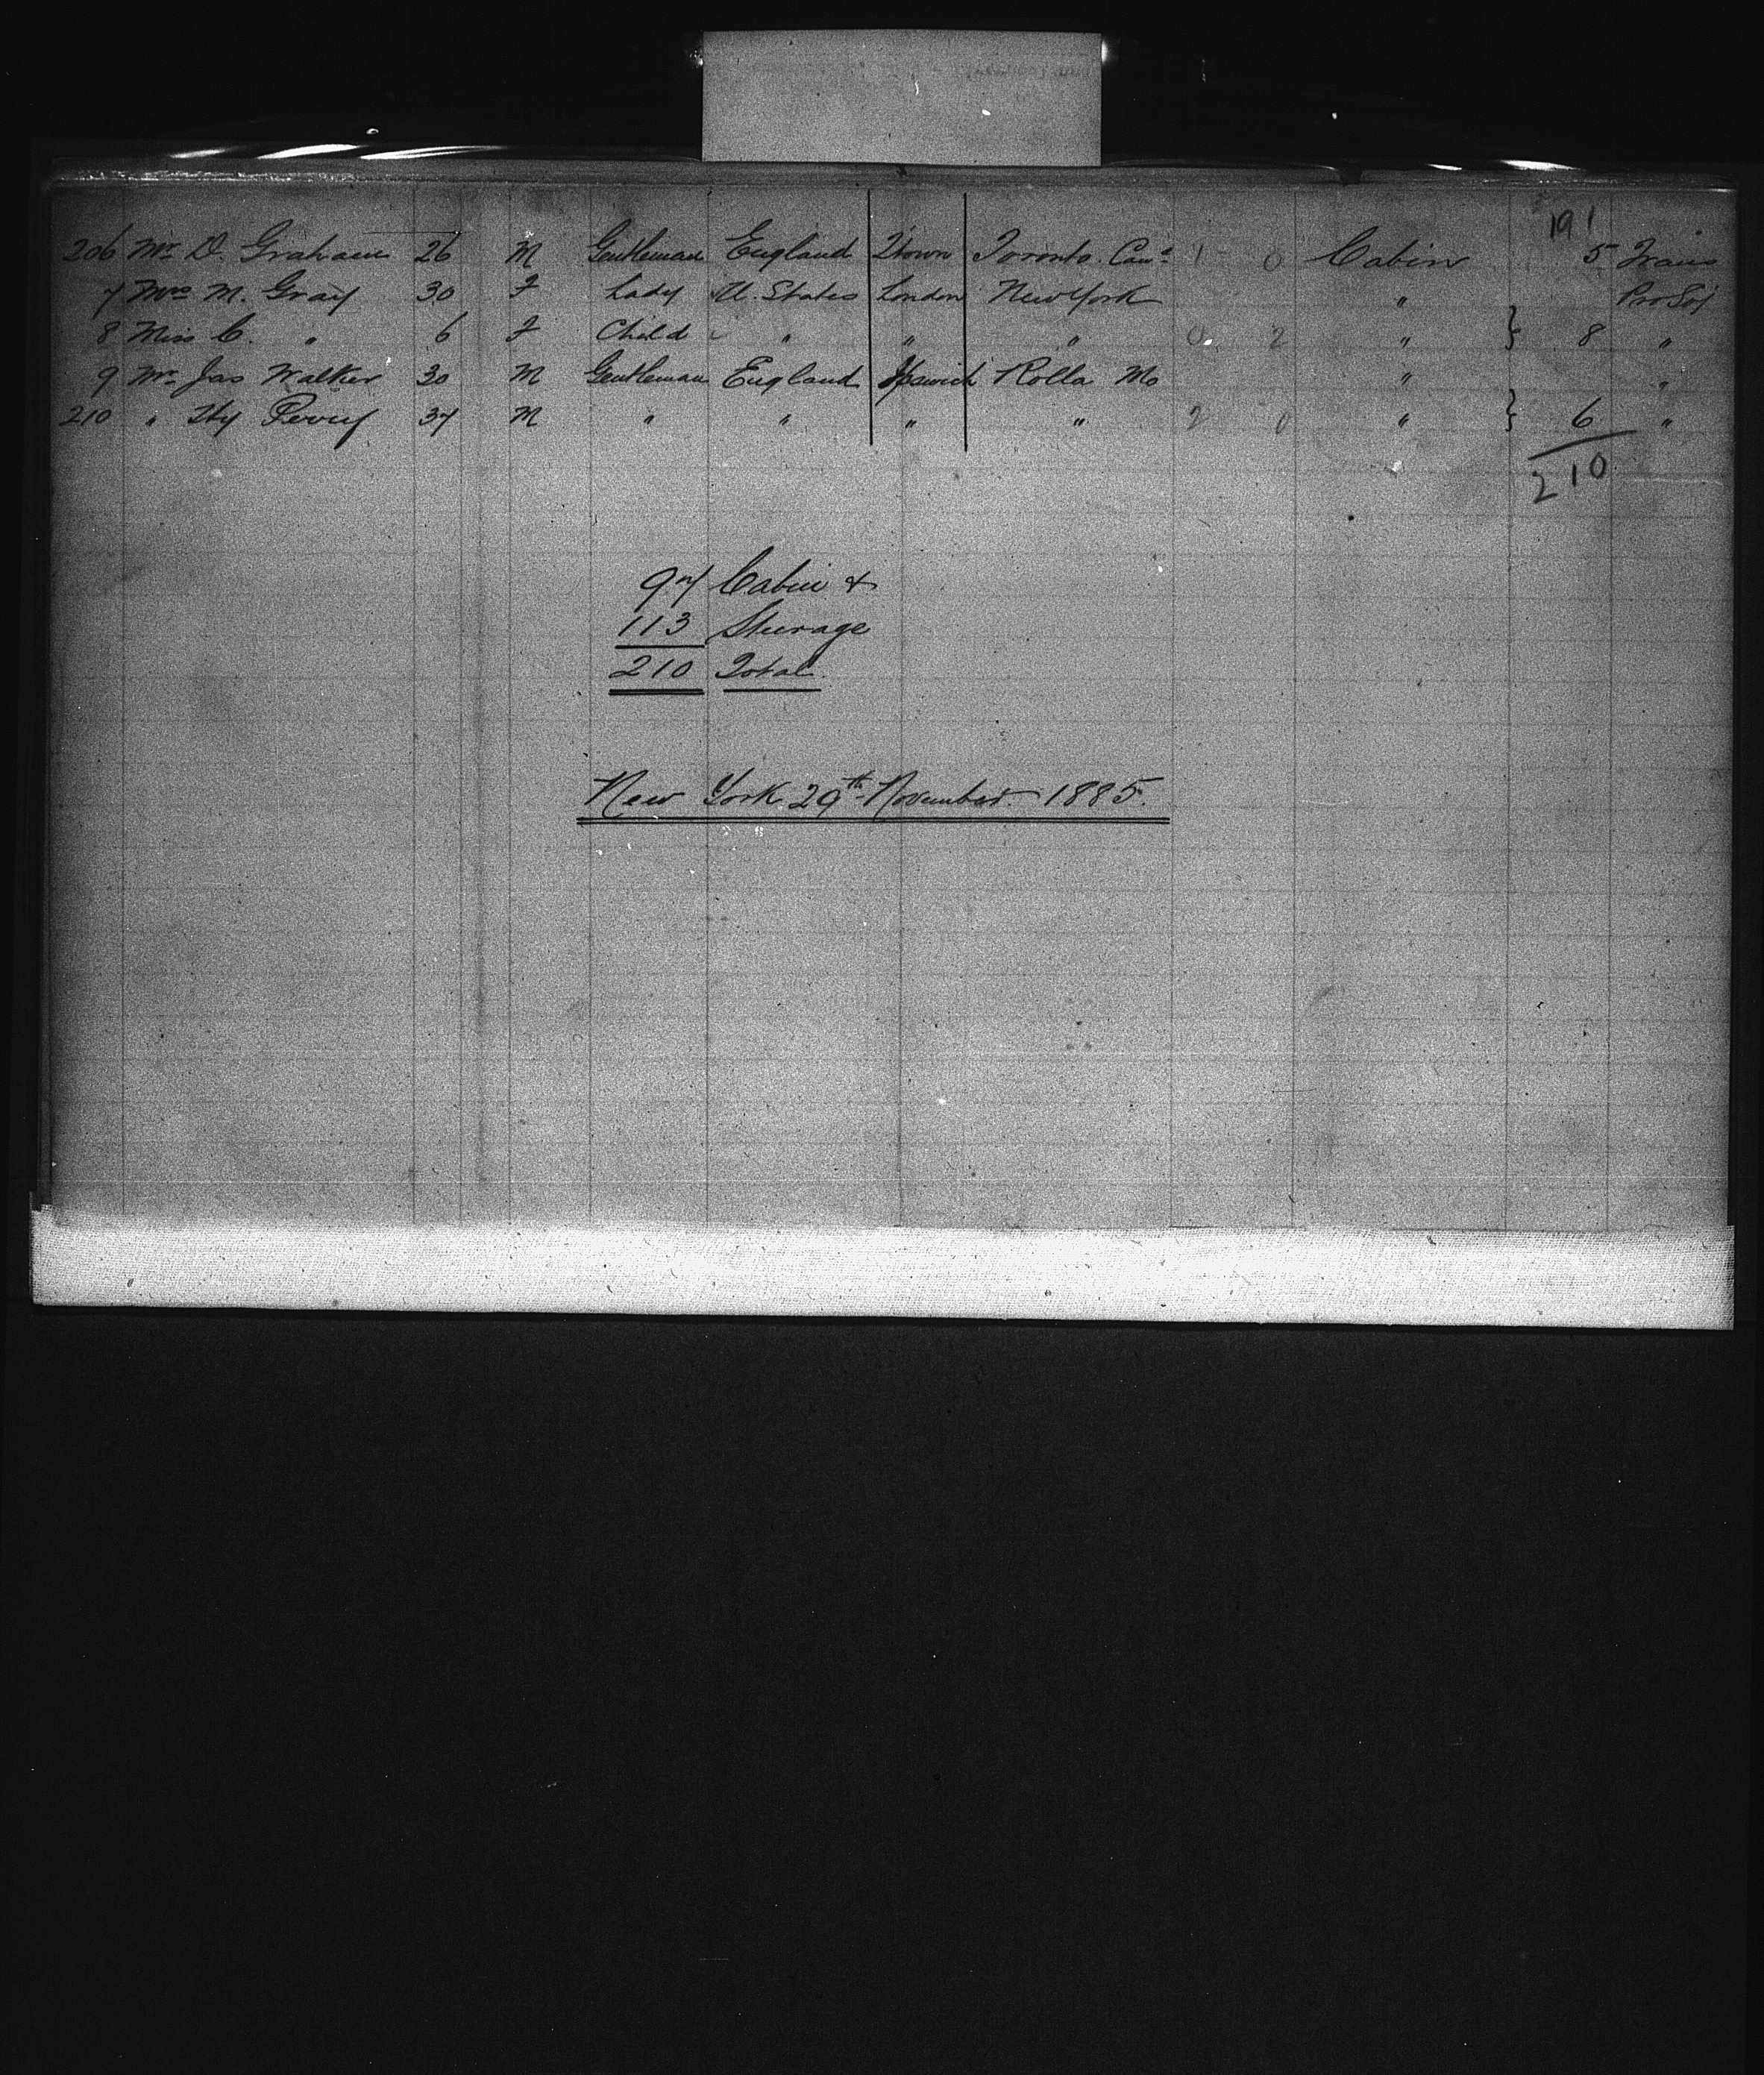 191
206 Mr. D. Graham 26 M Gentleman England Qtown Toronto. Can. 1 0 Cabin 5 Trans
7 Mrs M. Gray 30 F Lady U. States London New York " Pro Soj
8 Miss C. " 6 F Child " " " 0 2 " } 8 "
9 Mr. Jas Walker 30 M Gentleman England Ipswich Rolla Mo " "
210 " Hy Percy 37 M " " " " 2 0 " } 6 "
210
97 Cabin &
113 Steerage
210 Total.
New York 29th November. 1885.